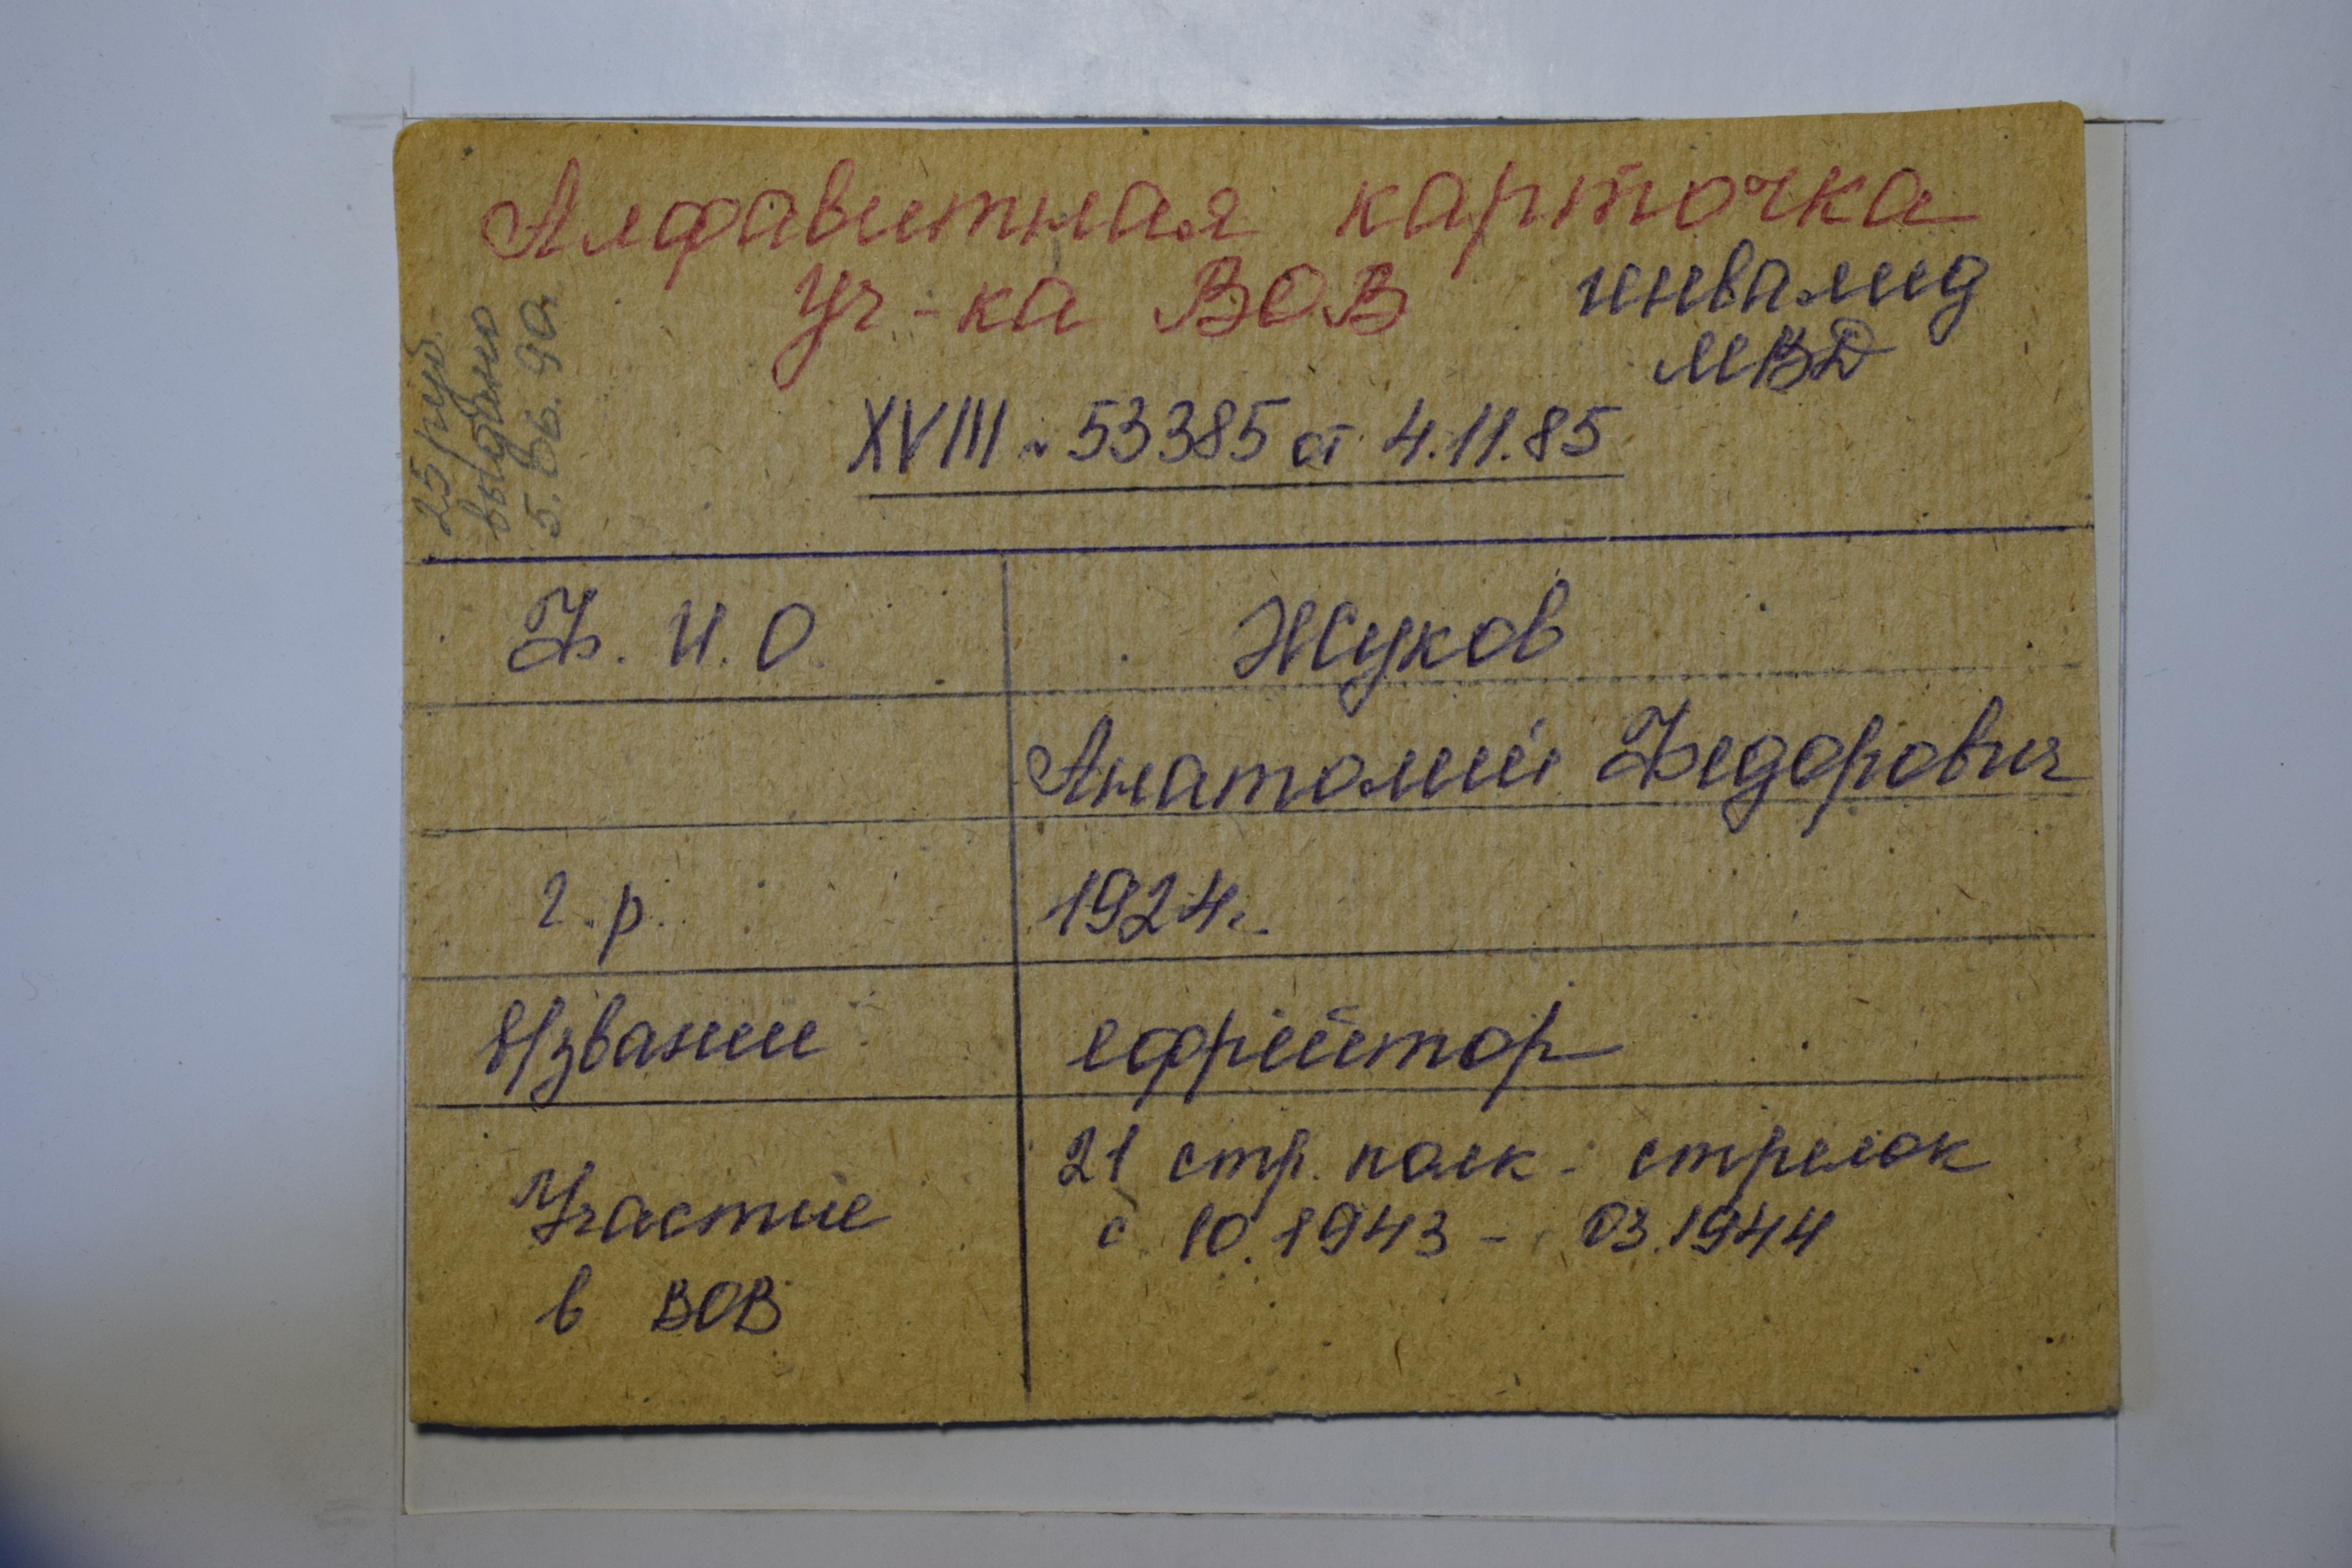 Алфавитная карточка
Уч-ка ВОВ
инвалид
МВД
25 руб.
выдано
5.06.90
XVIII № 53385 от 4.11.85
Ф. И. О. Жуков
Анатолий Федорович
г. р. 1924г.
в/звание ефрейтор
Участие
в ВОВ
21 стр. полк - стрелок
с 10.1943 - 03.1944